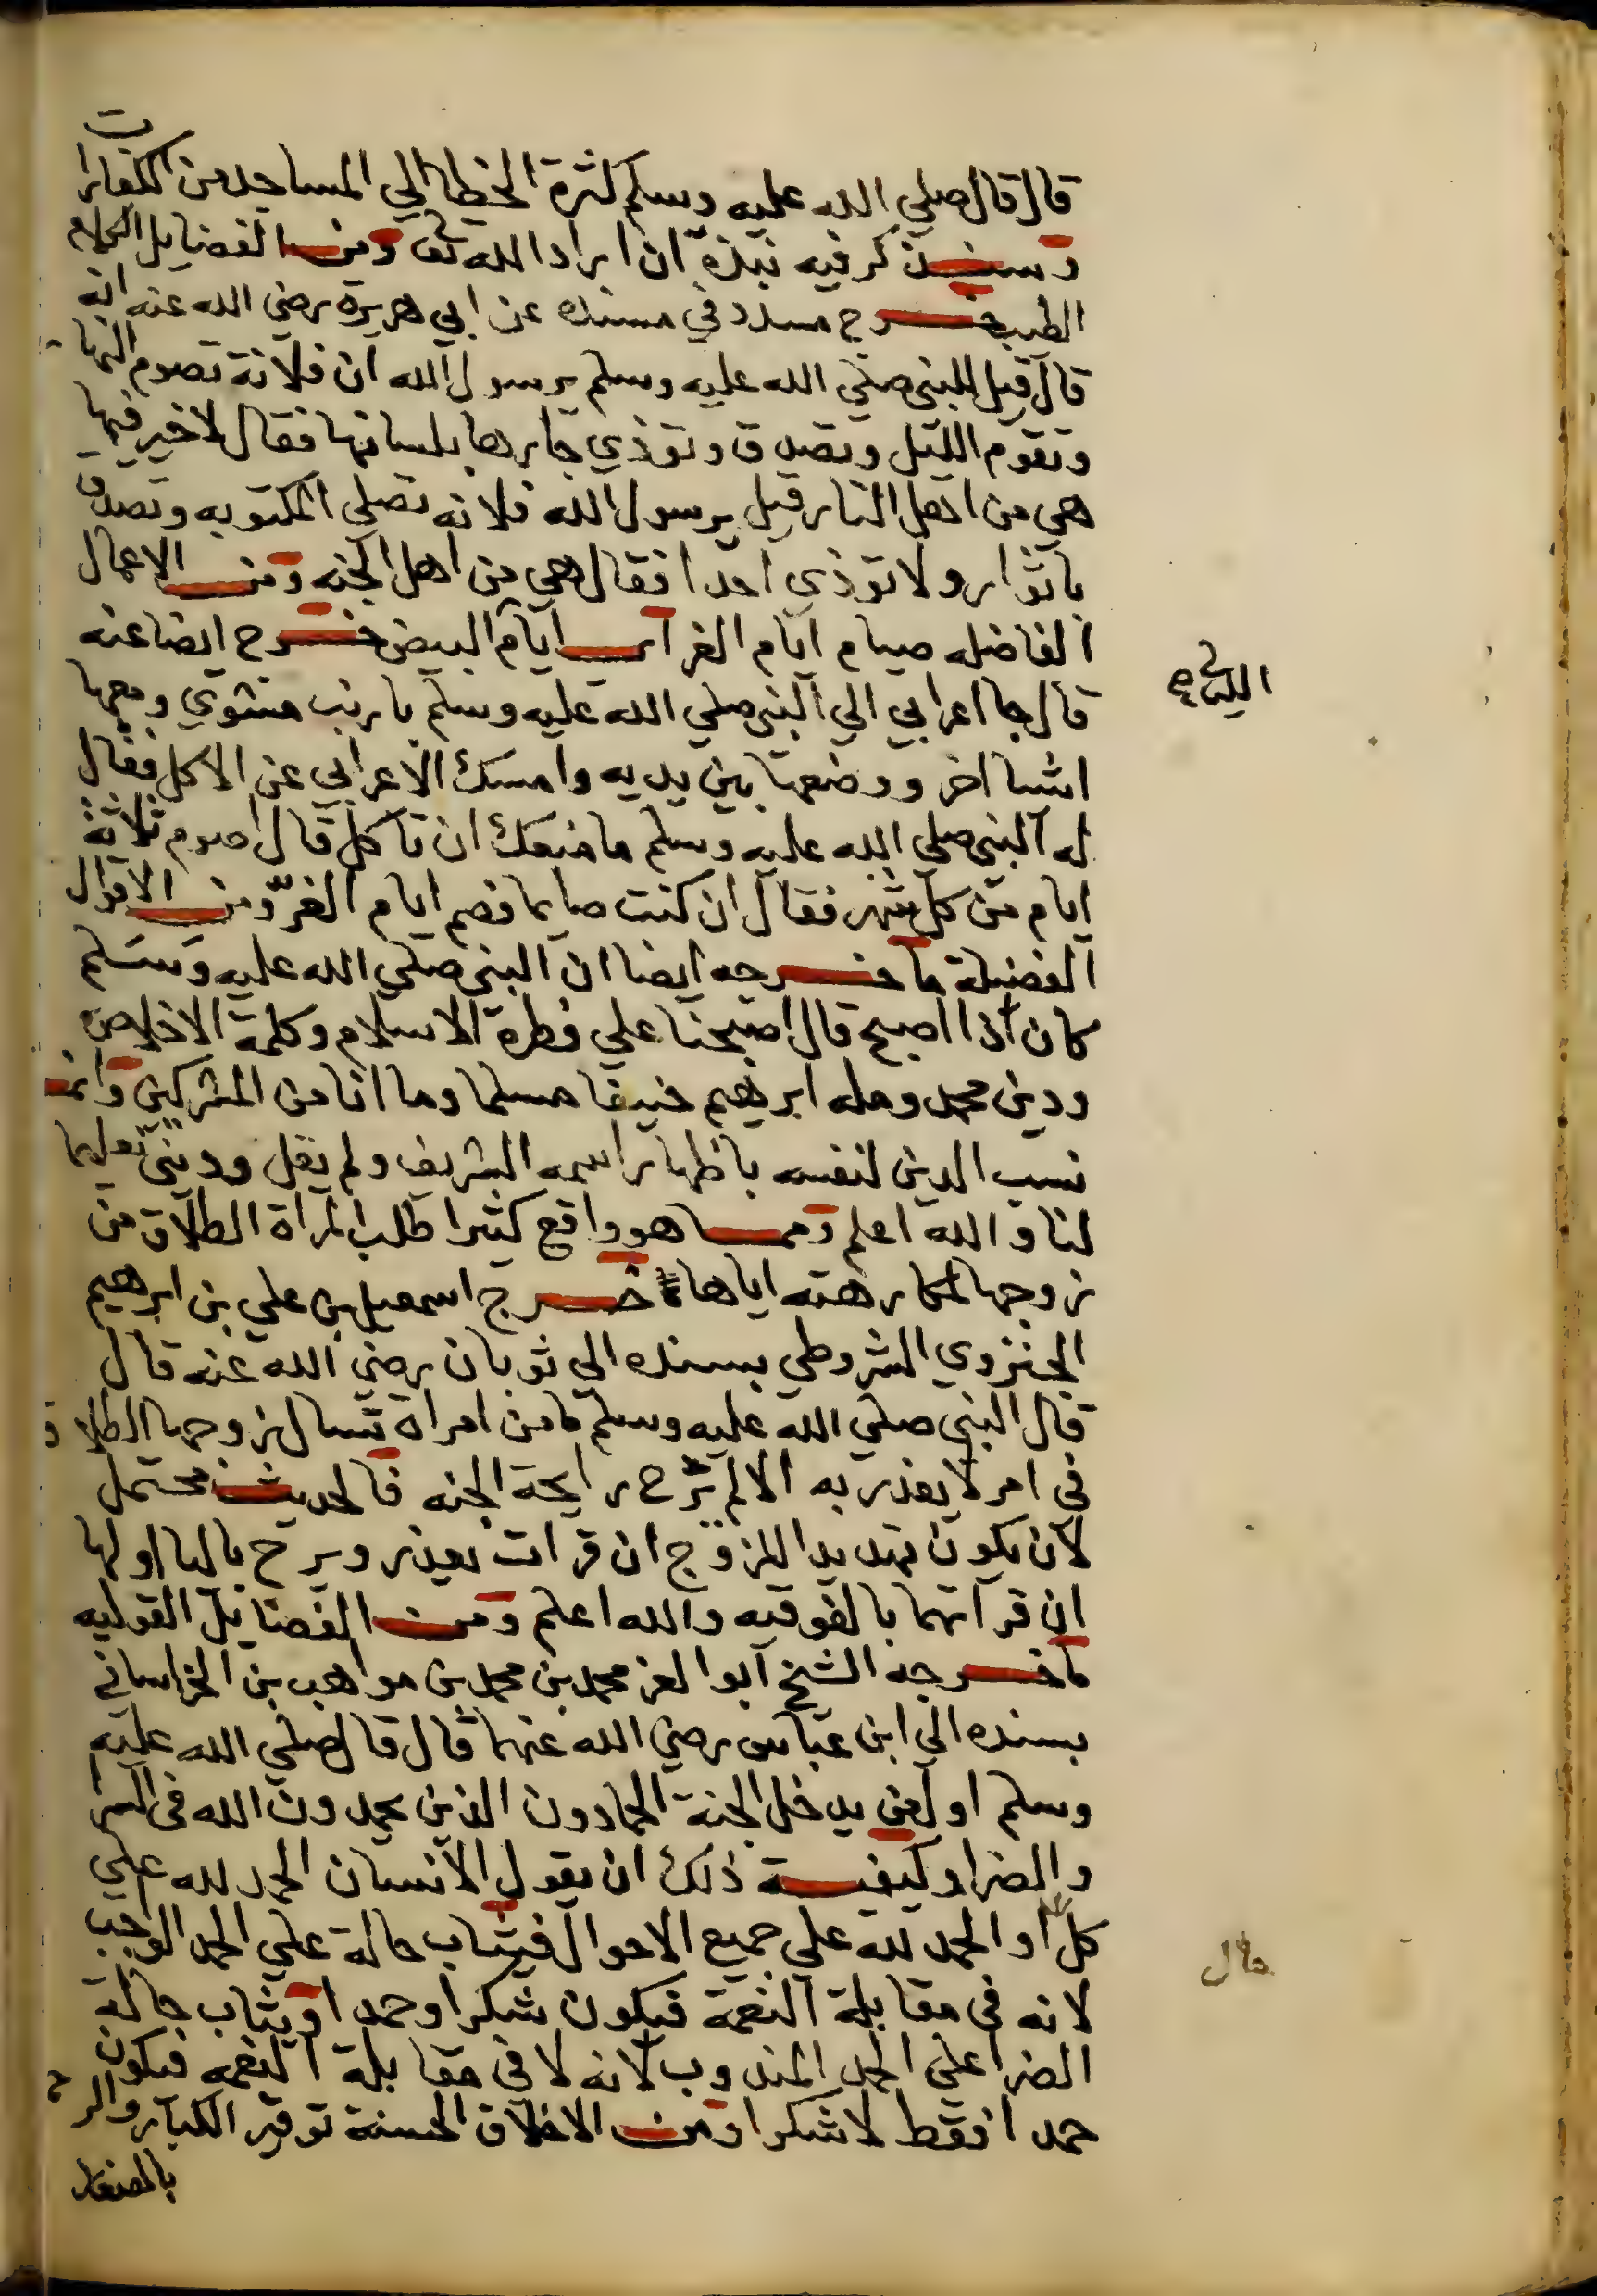 قال قال صلي الله عليه وسلم كثرة الخطا الي المساجد من الكفارات
وسنذكر فيه نبذة ان اراد الله تعا ومن الفضايل الكلام
الطيب خرج مسدد في مسنده عن ابي هريرة رضي الله عنه انه
قال قيل للنبي صلي الله عليه وسلم يرسول الله ان فلانة تصوم النهار
وتقوم الليل وتصدق وتوذي جارها بلسانها فقال لا خير فيها
هي من اهل النار قيل يرسول الله فلانه تصلي المكتوبه وتصدق
باثوار ولا توذي احدا فقال هي من اهل الجنه ومن الاعمال
الفاضله صيام ايام الغر اي ايام البيض خرج ايضا عنه
الليالي
قال جا اعرابي الي النبي صلي الله عليه وسلم بارنب مشوي ومعها
اشيا اخر ووضعها بين يديه وامسك الاعرابي عن الاكل فقال
له النبي صلي الله عليه وسلم ما منعك ان تاكل قال اصوم ثلاثة
ايام من كل شهر فقال ان كنت صايما فصم ايام الغرّ ومن الاقوال
الفضيلة ما خرجه ايضا ان النبي صلي الله عليه وسلم
كان اذا اصبح قال اصبحنا علي فطرة الاسلام وكلمة الاخلاص
ودين محمد ومله ابرهيم حنيفا مسلما وما انا من المشركين وانما
نسب الدين لنفسه باظهار اسمه الشريف ولم يقل وديني تعليما
لنا والله اعلم ومما هو واقع كثيرا طلب المراة الطلاق من
زوجها لمكارهته اياها خرج اسمعيل بن علي بن ابرهيم
الجنزوي الشروطي بسنده الي ثوبان رضي الله عنه قال
قال النبي صلي الله عليه وسلم ما من امراة تسال زوجها الطلاق
في امر لا يعذر به الا لم ترح رايحة الجنه فالحديث محتمل
لان يكون تهديدا للزوج ان قرات يعذر ويرح باليا او لها
ان قراتهما بالفوقيه والله اعلم ومن الفضايل القوليه
ما خرجه الشيخ ابوالعز محمد بن محمد بن مواهب بن الخراساني
بسنده الي ابن عباس رضي الله عنهما قال قال صلي الله عليه
وسلم اول من يدخل الجنة الحمادون الذين يحمدون الله في السر
والضرا وكيفية ذلك ان يقول الانسان الحمد لله علي
كل او الحمد لله علي جميع الاحوال فيثاب حالة علي الحمد الواجب
حال
لانه في مقابلة النعمة فيكون شكرا وحمدا ويثاب حالة
الضرا علي الحمد المندوب لانه لا في مقابلة النعمه فيكون
حمدا فقط لا شكرا ومن الاخلاق الحسنة توقير الكبار والرحمة
بالصغار